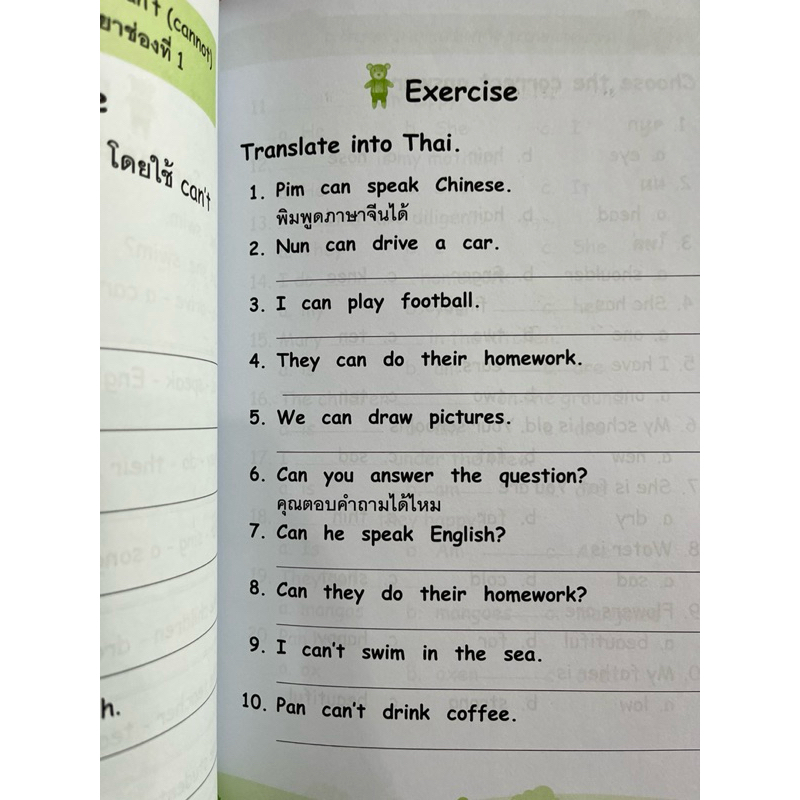 (cannot)
ยาช่องที่ 1
โดยใช้ can't
h.
Exercise
Translate into Thai.
1. Pim can speak Chinese.
พิมพูดภาษาจีนได้
2. Nun can drive a car.
3. I can play football.
4. They can do their homework.
5. We can draw pictures.
6. Can you answer the question?
คุณตอบคำถามได้ไหม
7. Can he speak English?
8. Can they do their homework?
9. I can't swim in the sea.
10. Pan can't drink coffee.